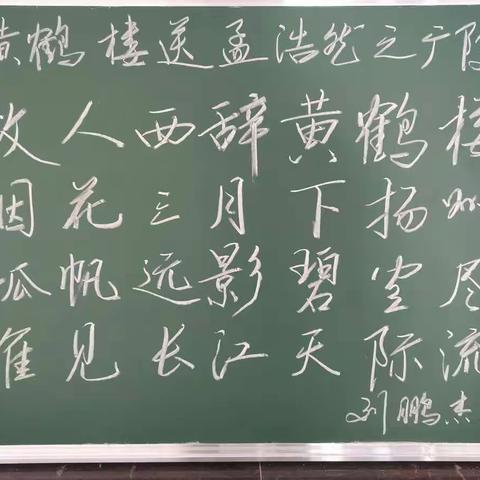 黄鹤楼送孟浩然之广陵
故人西辞黄鹤楼
烟花三月下扬州
孤帆远影碧空尽
唯见长江天际流
刘鹏杰